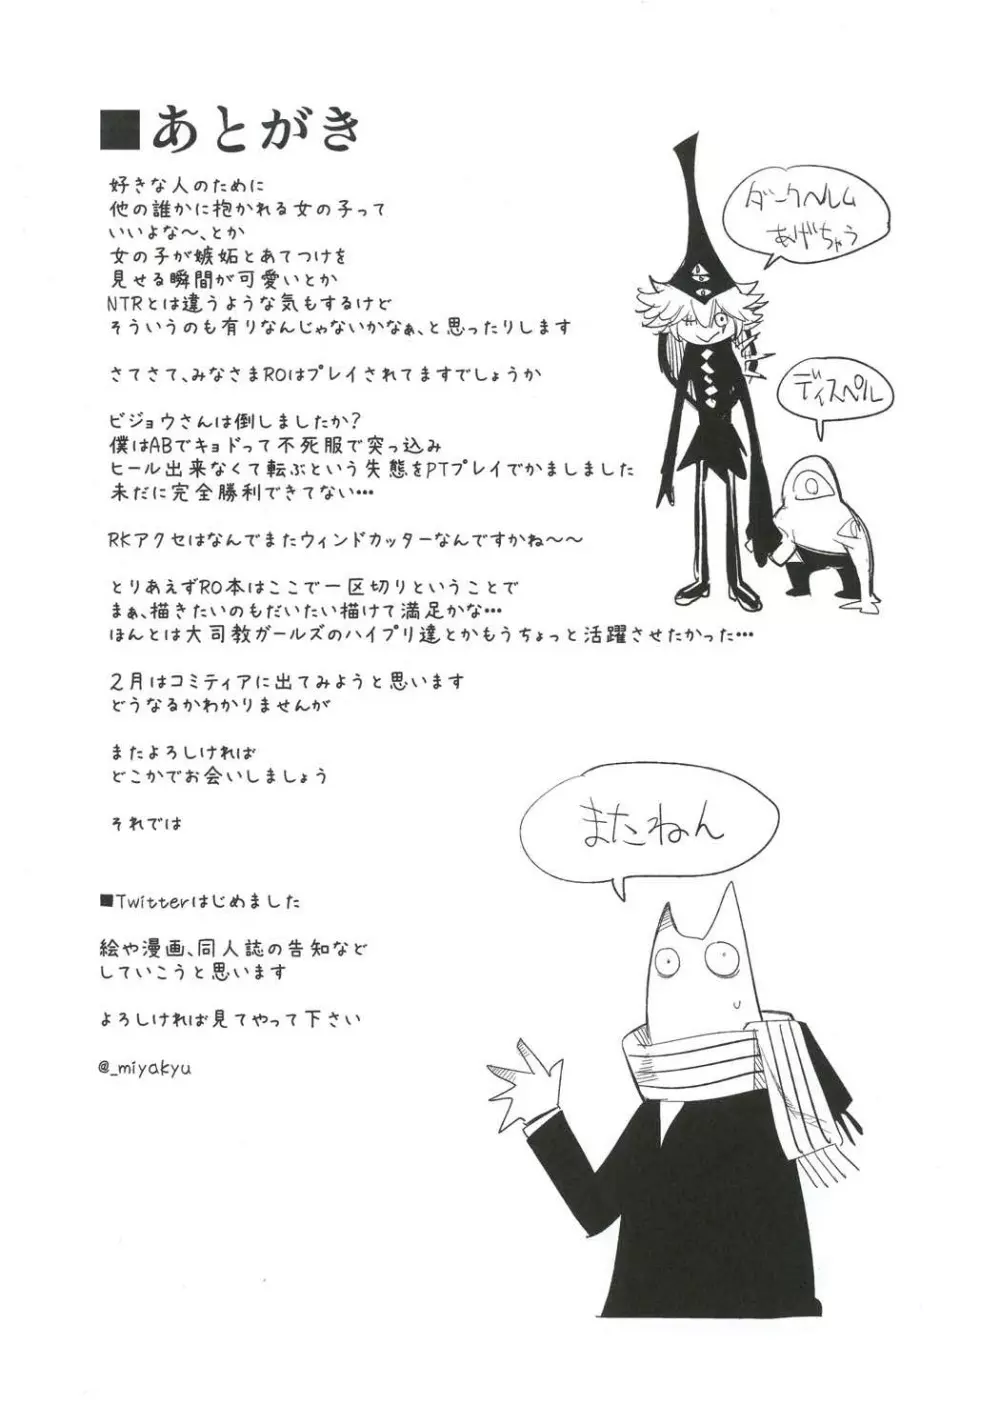 ■あとがき
好きな人のために
他の誰かに抱かれる女の子って
いいよな〜、とか
女の子が嫉妬とあてつけを
見せる瞬間が可愛いとか
NTRとは違うような気もするけど
そういうのも有りなんじゃないかなぁ、と思ったりします
さてさて、みなさまROはプレイされてますでしょうか
ビジョウさんは倒しましたか?
僕はABでキョドって不死服で突っ込み
ヒール出来なくて転ぶという失態をPTプレイでかましました
未だに完全勝利できてない…
RKアクセはなんでまたウィンドカッターなんですかね〜〜
とりあえずRO本はここで一区切りということで
まぁ、描きたいのもだいたい描けて満足かな…
ほんとは大司教ガールズのハイプリ達とかもうちょっと活躍させたかった…
2月はコミティアに出てみようと思います
どうなるかわかりませんが
またよろしければ
どこかでお会いしましょう
それでは
■Twitterはじめました
絵や漫画、同人誌の告知など
していこうと思います
よろしければ見てやって下さい
@_miyakyu
ダークヘルム
あげちゃう
ディスペル
またねん